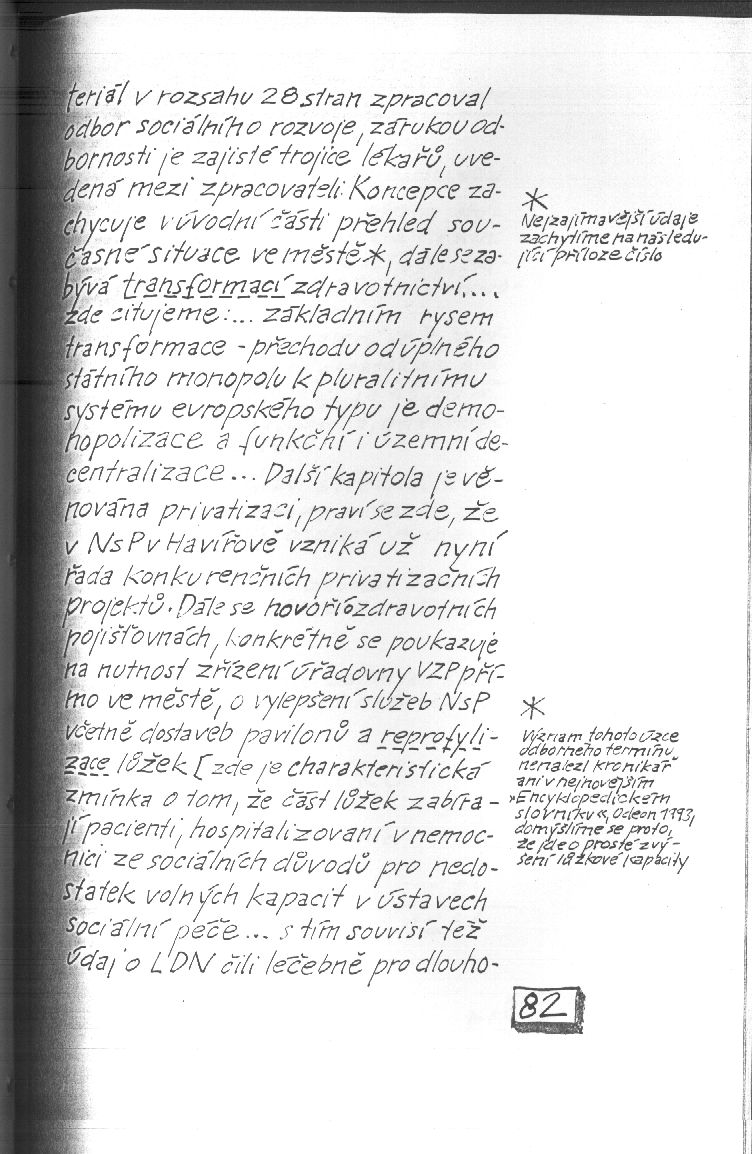 teriál v rozsahu 28 stran zpracoval
odbor sociálního rozvoje, zárukou od-
bornosti je zajisté trojice lékařů, uve-
dená mezi zpracovateli. Koncepce za-
chycuje v úvodní části přehled sou-
časné situace ve městě*, dále se za-
bývá transformací zdravotnictví...
zde citujeme: ... základním rysem
transformace - přechodu od úplného
státního monopolu k pluralitnímu
systému evropského typu je demo-
nopolizace a funkční i územní de-
centralizace... Další kapitola je vě-
nována privatizaci, praví se zde, že
v NsP v Havířově vzniká už nyní
řada konkurenčních privatizačních
projektů. Dále se hovoří o zdravotních
pojišťovnách, konkrétně se poukazuje
na nutnost zřízení úřadovny VZP pří-
mo ve městě, o vylepšení služeb NsP
včetně dostaveb pavilonů a reprofyli-
zace lůžek [zde je charakteristická
zmínka o tom, že část lůžek zabíra-
jí pacienti, hospitalizovaní v nemoc-
nici ze sociálních důvodů pro nedo-
statek volných kapacit v ústavech
sociální péče... s tím souvisí též
údaj o LDN čili léčebně pro dlouho-
*
Nejzajímavější údaje
zachytíme na následu-
jící příloze číslo
*
Význam tohoto úzce
odborného termínu
nenalezl kronikář
ani v nejnovějším
»Encyklopedickém
slovníku«, Odeon 1993,
domýšlíme se proto,
že jde o prosté zvý-
šení lůžkové kapacity
82